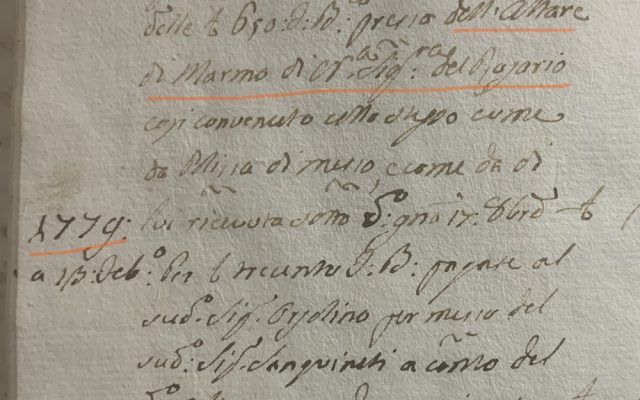 delle £ 650: d: B:º prezzo dell'Altare
di Marmo di N.ª Sig.ra del Rosario
così convenuto collo stesso come
da Polissa di mezo, e come da di
lui ricevuta sotto Sº: gño 17: 8brᵉ £
1779:
a 13: feb:º Per £ trecento d: B: pagate al
sud.º Sig.r Orsolino per mezzo del
sud.º: Sig.r Sanguineti a cõnto del